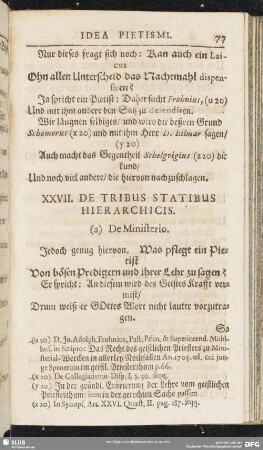 IDEA PIETISMI. 77
Nur dieses fragt sich noch: Kan auch ein Lai-
cus
Ohn allen Unterscheid das Nachtmahl dispen-
siren?
Ja spricht ein Pietist: Daher sucht Frobnius, (u 20)
Und mit ihm andere den Satz zu defendiren.
Wir läugnen selbiges/ und wird die bessern Grund
Schomerus (x 20) und mit ihm Herr D. Eilmar sagen/
(y 20)
Auch macht das Gegentheil Schelgvigius (z 20) dir
kund/
Und noch viel andere/ die hiervon nachzuschlagen.
XXVII. DE TRIBUS STATIBUS
HIERARCHICIS.
(a) De Ministerio.
Jedoch genug hiervon. Was pflegt ein Pie-
tist
Von bösen Predigern und ihrer Lehr zu sagen?
Er spricht: An diesem wird des Geistes Krafft ver-
mist/
Drum weiß er GOttes Wort nicht lauter vorzutra-
gen.
So
(u 20) D. Jo. Adolph. Frohnius, Past. Prim. & Superintend. Mülh-
hus. in Scripto: Das Recht des geistlichen Priesters zu Mini-
sterial-Wercken in allerley Nothfällen An. 1705. ed. incl. jun-
ge Spenerum im geistl. Priesterthum p. 66.
(x 20) De Collegiatismo Disp. I. §. 50. seqq.
(y 20) In der gründl. Erörterung der Lehre vom geistlichen
Priesterthum: item in der gerechten Sache passim.
(z 20) In Synopf. Art. XXVI. Quæst. II. pag. 287. seqq.
SLUB
DFG